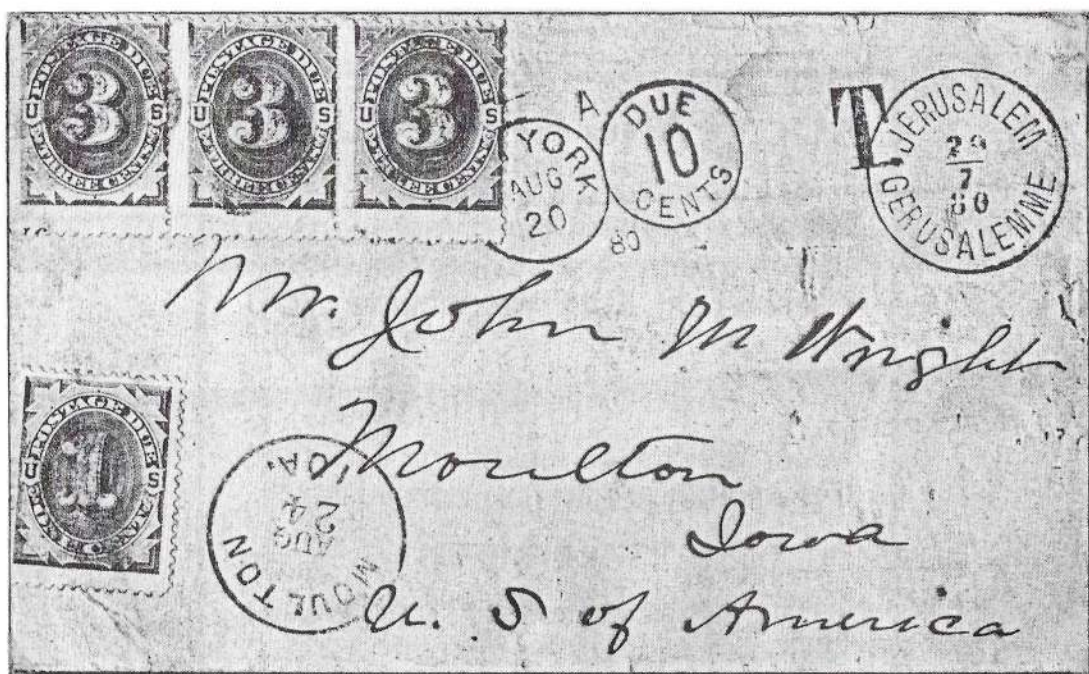 U POSTAGE DUE S
3
THREE CENTS
U POSTAGE DUE S
3
THREE CENTS
U POSTAGE DUE S
3
THREE CENTS
YORK
AUG
20
A
DUE
10
CENTS
80
T
JERUSALEM
29
7
80
GERUSALEMME
Mr. John M Wright
Moulton
Iowa
U. S of America
U POSTAGE DUE S
1
ONE CENT
MOULTON
AUG
24
IOA.